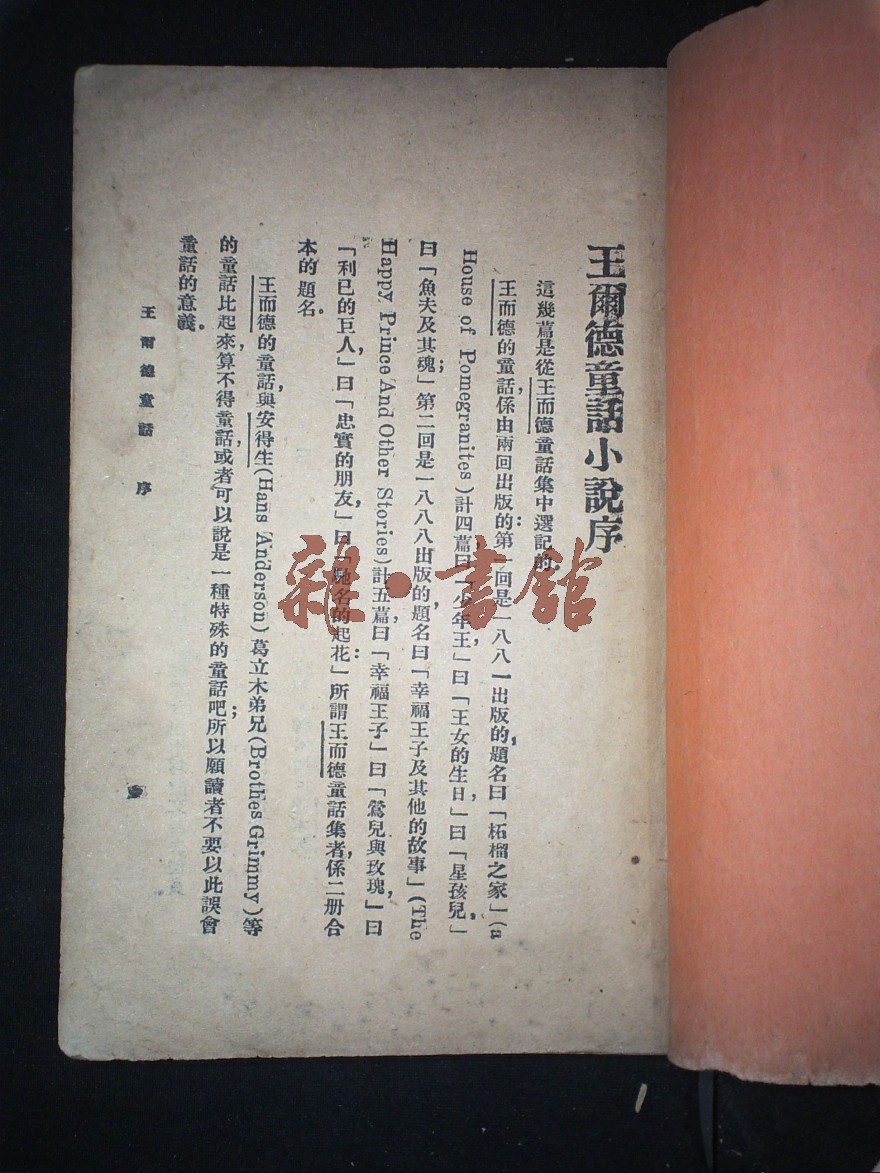 王爾德童話小說序
這幾篇是從王而德童話集中選記的。
王而德的童話，係由兩回出版的：第一回是一八八一出版的，題名曰「柘榴之家」(a
House of Pomegranites)計四篇，曰「少年王」曰「王女的生日」曰「星孩兒，」
曰「魚夫及其魂」；第二回是一八八八出版的，題名曰「幸福王子及其他的故事」(The
Happy Prince And Other Stories)計五篇，曰「幸福王子」曰「鶯兒與玫瑰，」曰
「利已的巨人，」曰「忠實的朋友，」曰「馳名的起花」：所謂王而德童話集者，係二册合
本的題名。
王而德的童話，與安得生(Hans Anderson)葛立木弟兄(Brothes Grimmy)等
的童話比起來，算不得童話，或者可以說是一種特殊的童話吧；所以願讀者不要以此誤會
童話的意義。
王爾德童話 序
雜·書館